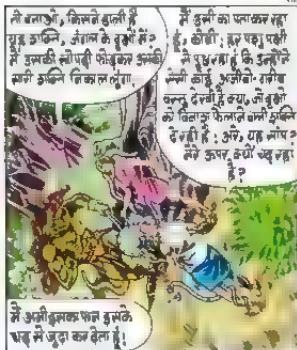 तो बताओ, किसने डाली है
यह शक्ति, जंगल के वृक्षों में?
मैं उसकी खोपड़ी फोड़कर उसकी
सारी शक्ति निकाल लूंगा.
मैं उसी का पता कर रहा
हूं, कोबी! हर पशु पक्षी
से पूछ रहा हूं कि उन्होंने
ऐसी कोई अजीबो-गरीब
वस्तु देखी है क्या, जो वृक्षों
को विनाश फैलाने वाली शक्ति
दे रही है! अरे, यह सांप
मेरे ऊपर क्यों चढ़ रहा
है?
मैं अभी इसका फन इसके
धड़ से जुदा कर देता हूं!